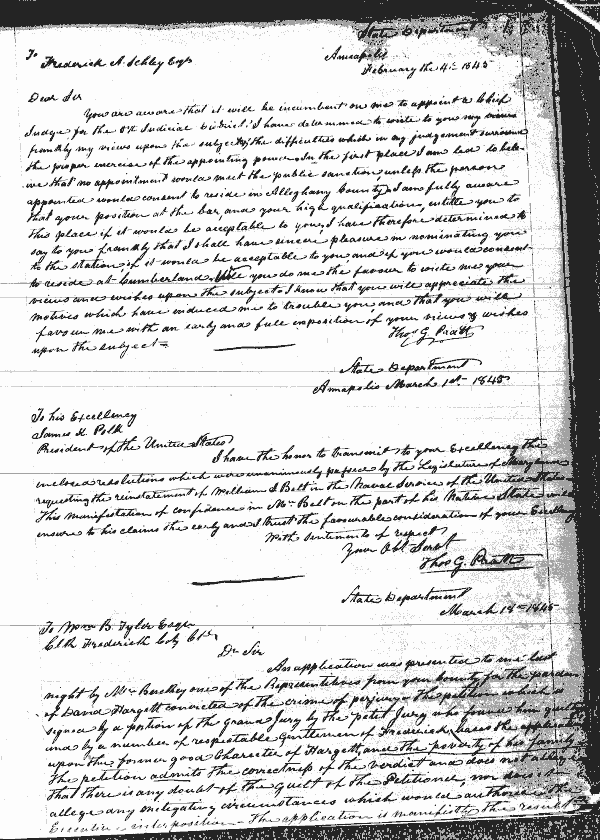 State Department
Annapolis
February the 4th 1845
To
Frederick A. Schley Esqr
Dear Sir
You are aware that it will be incumbent on me to appoint a Chief
Judge for the 5th Judicial District. I have determined to write to you my views
frankly my views upon the subject, the difficulties which in my judgement surround
the proper exercise of the appointing power. In the first place I am led to bele-
ive that no appointment would meet the public sanction unless the person
appointed would consent to reside in Alleghany County. I am fully aware
that your position at the bar, and your high qualifications, entitle you to
this place if it would be acceptable to you, I have therefore determined to
say to you frankly that I shall have sincere pleasure in nominating you
to the station if it would be acceptable to you and if you would consent
to reside at Cumberland. Will you do me the favour to write me your
views and wishes upon the subject. I know that you will appreciate the
motives which have induced me to trouble you and that you will
favour me with an early and full exposition of your views & wishes
upon the subject
Thos G. Pratt
State Department
Annapolis March 1st 1845
To his Excellency
James K. Polk
President of the United States
I have the honor to transmit to your Excellency the
enclosed resolutions which were unanimously passed by the Legislature of Maryland
requesting the reinstatement of William S Belt in the Naval Service of the United States
This manifestation of confidence in Mr Belt on the part of his Native State will
ensure to his claims the early and I trust the favourable consideration of your Excellency
With sentiments of respect
Your Obt Servt
Thos G. Pratt
State Department
March 18th 1845
To Wm B. Tyler Esqr
Clk Frederick Coty Ct
Dr Sir
An application was presented to me last
night by Mr Buckey one of the Representatives from your County for the pardon
of David Hargett convicted of the crime of perjury. The petition which is
signed by a portion of the grand Jury by the petit Jury who found him guilty
and by a number of respectable Gentlemen of Frederick, bases the application
upon the former good Character of Hargett, and the poverty of his family
The petition admits the correctness of the verdict and does not allege
that there is any doubt of the guilt of the Petitioner, nor does it
allege any mitigating circumstances which would authorise the
Executive interposition. The application is manifestly the result